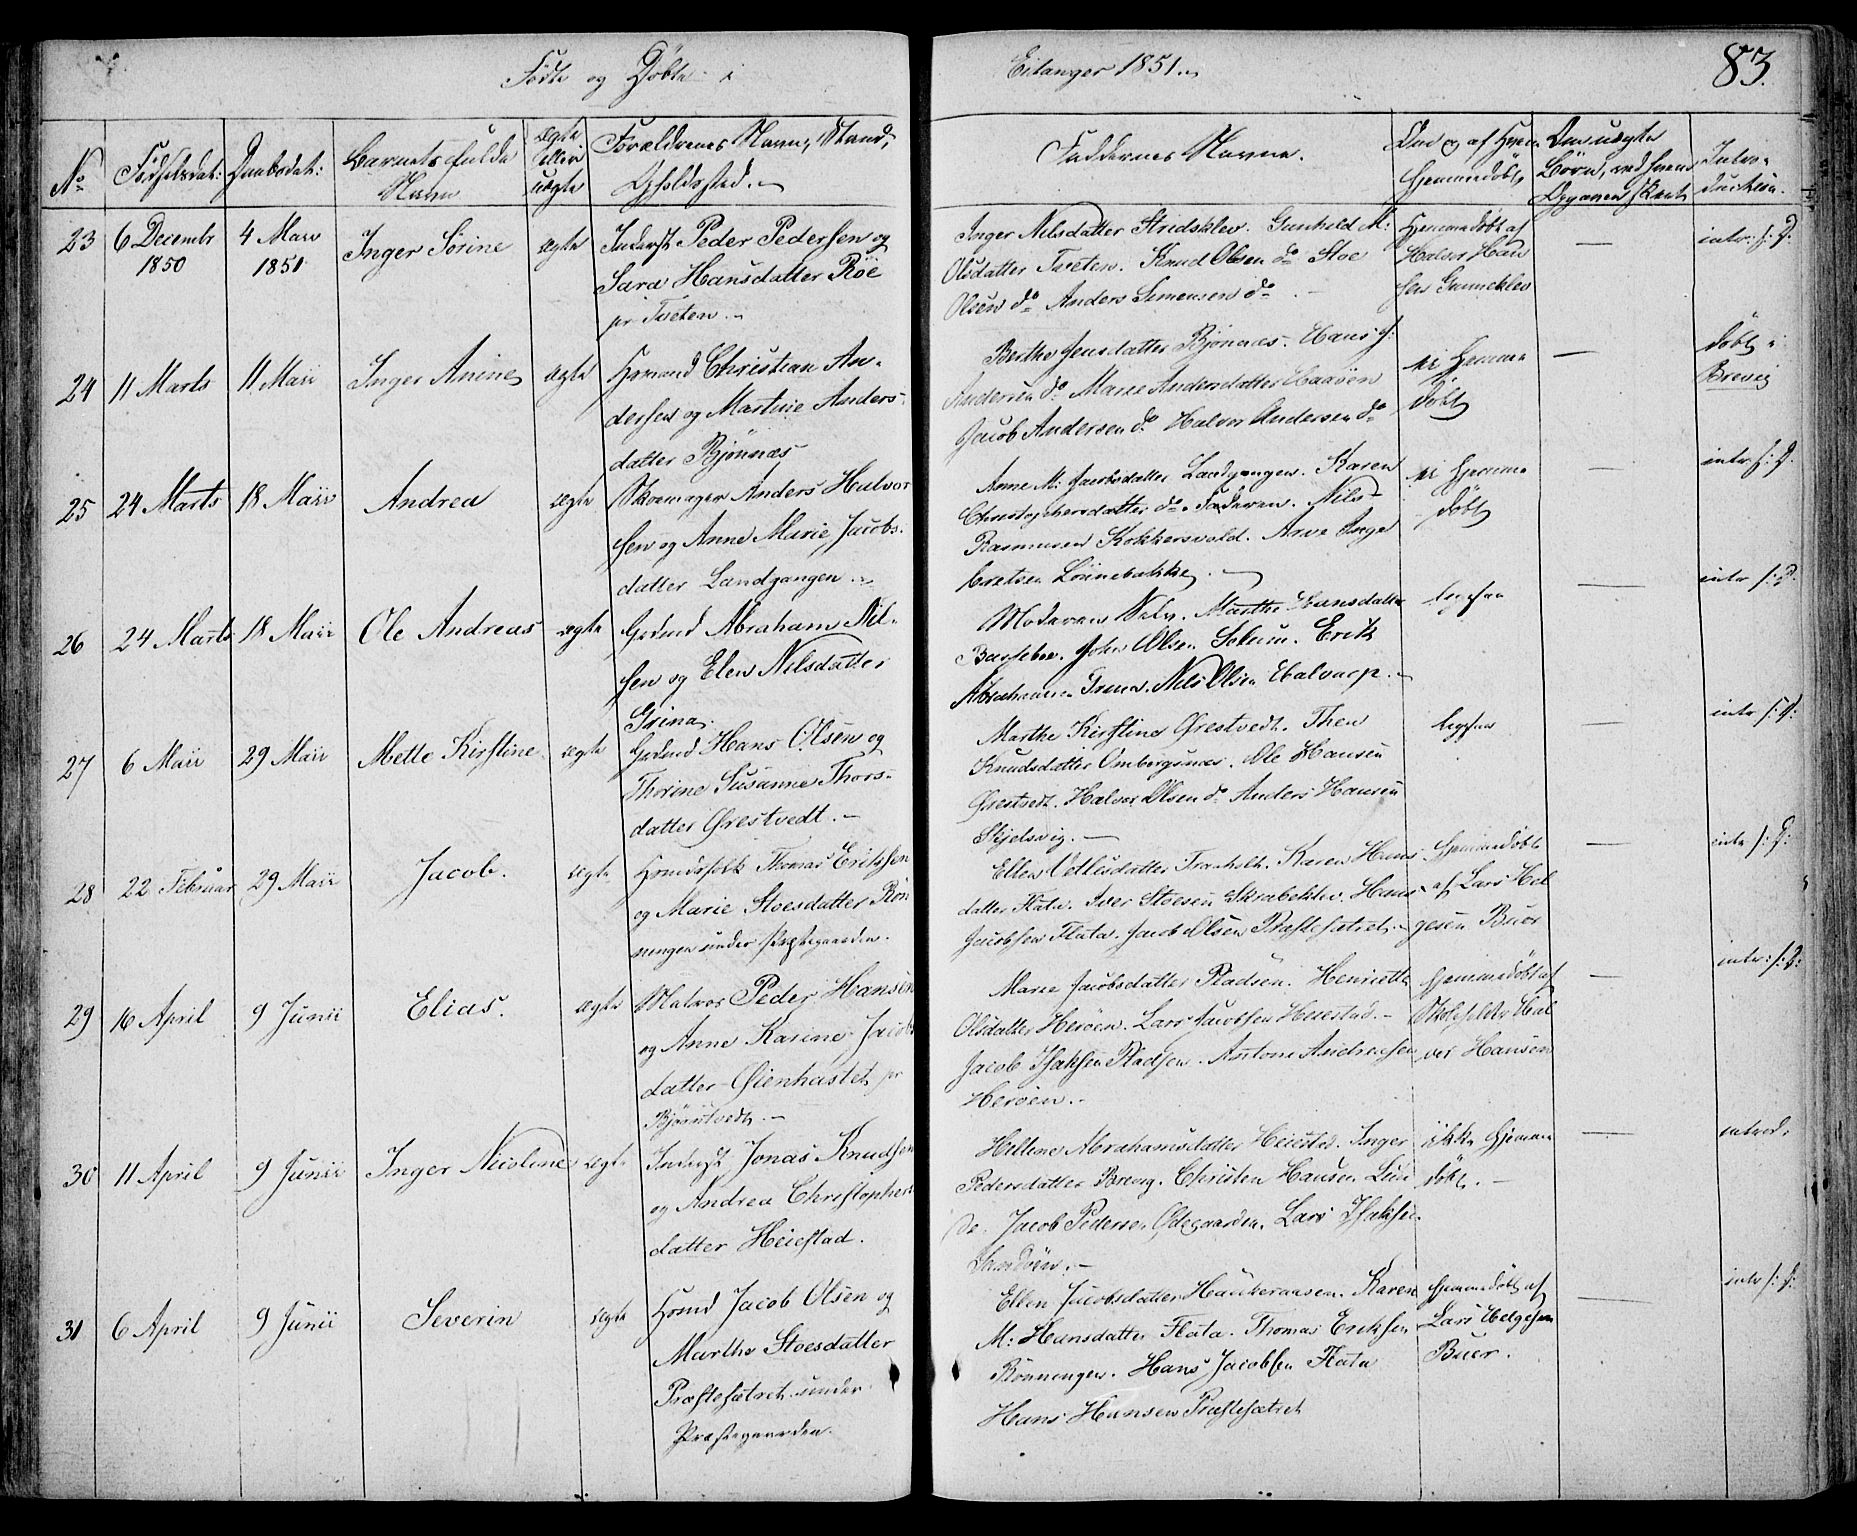 Fødte og Døbte i Eilanger 1851.
83.
No
Fødselsdat:
Daabsdat:
Barnets fulde
Navn
ægte
eller
uægte
Forældrenes Navn, Stand,
Opholdssted.
Faddernes Navne.
Om og af hvem
hjemmedøbt
Om uægte
Børn, ved hvem
Opgaven skeet
Intro-
duction.
23
6 Decembr
1850
4 Maii
1851
Inger Sørine
ægte
Inderst Peder Pedersen og
Sara Hansdatter Röe
pr Tveten.
Inger Nilsdatter Stridsklev. Gunhild M:
Olsdatter Tveten. Knud Olsen do Stoe
Olsen do Anders Simensen do
Hjemmedøbt af
Halvor Han
sen Gunneklev
intr: f: D.
24
11 Marts
11 Maii
Inger Anine
ægte
Husmand Christian An-
dersen og Martine Anders-
datter Bjönnæs
Berthe Jensdatter Bjönnæs. Hans J:
Andersen do Maria Andersdatter Haaöen
Jacob Andersen do Halvor Andersen do
ei hjemme
døbt
døbt i
Brevig
25
24 Marts
18 Maii
Andrea
ægte
Skomager Anders Halvor
sen og Anne Marie Jacobs-
datter Landgangen.
Anne M: Jacobsdatter Landgangen. Karen
Christophersdatter do. Faderen. Nils
Rasmussen Kokkersvold. Arve Inge
bretsen Lönnebakke.
ei hjemme
døbt
intr f: D.
26
24 Marts
18 Maii
Ole Andreas
ægte
Grdmd Abraham Nil-
sen og Elen Nilsdatter
Grina.
Moderen Selv. Marthe Hansdatter
Bassebo. John Olsen Solum. Erik
Abrahamsen Grina. Nils Olsen Halvarp.
ligesaa
intr f: D.
27
6 Maii
29 Maii
Mette Kirstine
ægte
Grdmd Hans Olsen og
Thorine Susanne Thors-
datter Ørestvedt.
Marthe Kirstine Ørestvedt. Thea
Knudsdatter Ombergsnæs. Ole Hansen
Ørestvedt. Halvor Olsen do Anders Hansen
Skjelsvig.
ligesaa
intr f: D:
28
22 Februar
29 Maii
Jacob.
ægte
Husmdsfolk Thomas Eriksen
og Marie Stoesdatter Rön
ningen under Præstegaarden.
Ellen Detlisdatter Tranholt. Karen Hans
datter Flata. Iver Stoesen Skrabeklev. Hans
Jacobsen Flata. Jacob Olsen Præstesætret.
Hjemmedøbt
af Lars Hel
gesen Buer
intr f: D:
29
16 April
9 Junii
Elias.
ægte
Matros Peder Hansen
og Anne Karine Jacobs
datter Øienhastet pr
Bjönstvedt.
Marie Jacobsdatter Pladsen. Henriette
Olsdatter Heröen. Lars Jacobsen Heiestad.
Jacob Isaksen Pladsen. Anton Andreasen
Heröen.
hjemmedøbt af
Skoleholder Hal
vor Hansen
intr: f: D:
30
11 April
9 Junii
Inger Nicoline
ægte
Inderst Jonas Knudsen
og Andrea Christophers
datter Heiestad.
Hellene Abrahamsdatter Heiestad. Inger
Pedersdatter Brevig. Christen Hansen Lun
de. Jacob Pedersen Ødegaarden. Lars Isaksen
Sandöen.
ikke hjemme
døbt.
introd.
31
6 April
9 Junii
Severin
ægte
Husmd Jacob Olsen og
Marthe Stoesdatter
Præstesætret under
Præstegaarden.
Ellen Jacobsdatter Haukeraasen. Karen
M: Hansdatter Flata. Thomas Eriksen
Rönningen. Hans Jacobsen Flata
Hans Hansen Præstesætret
hjemmedøbt af
Lars Helgesen
Buer.
intr f: D: